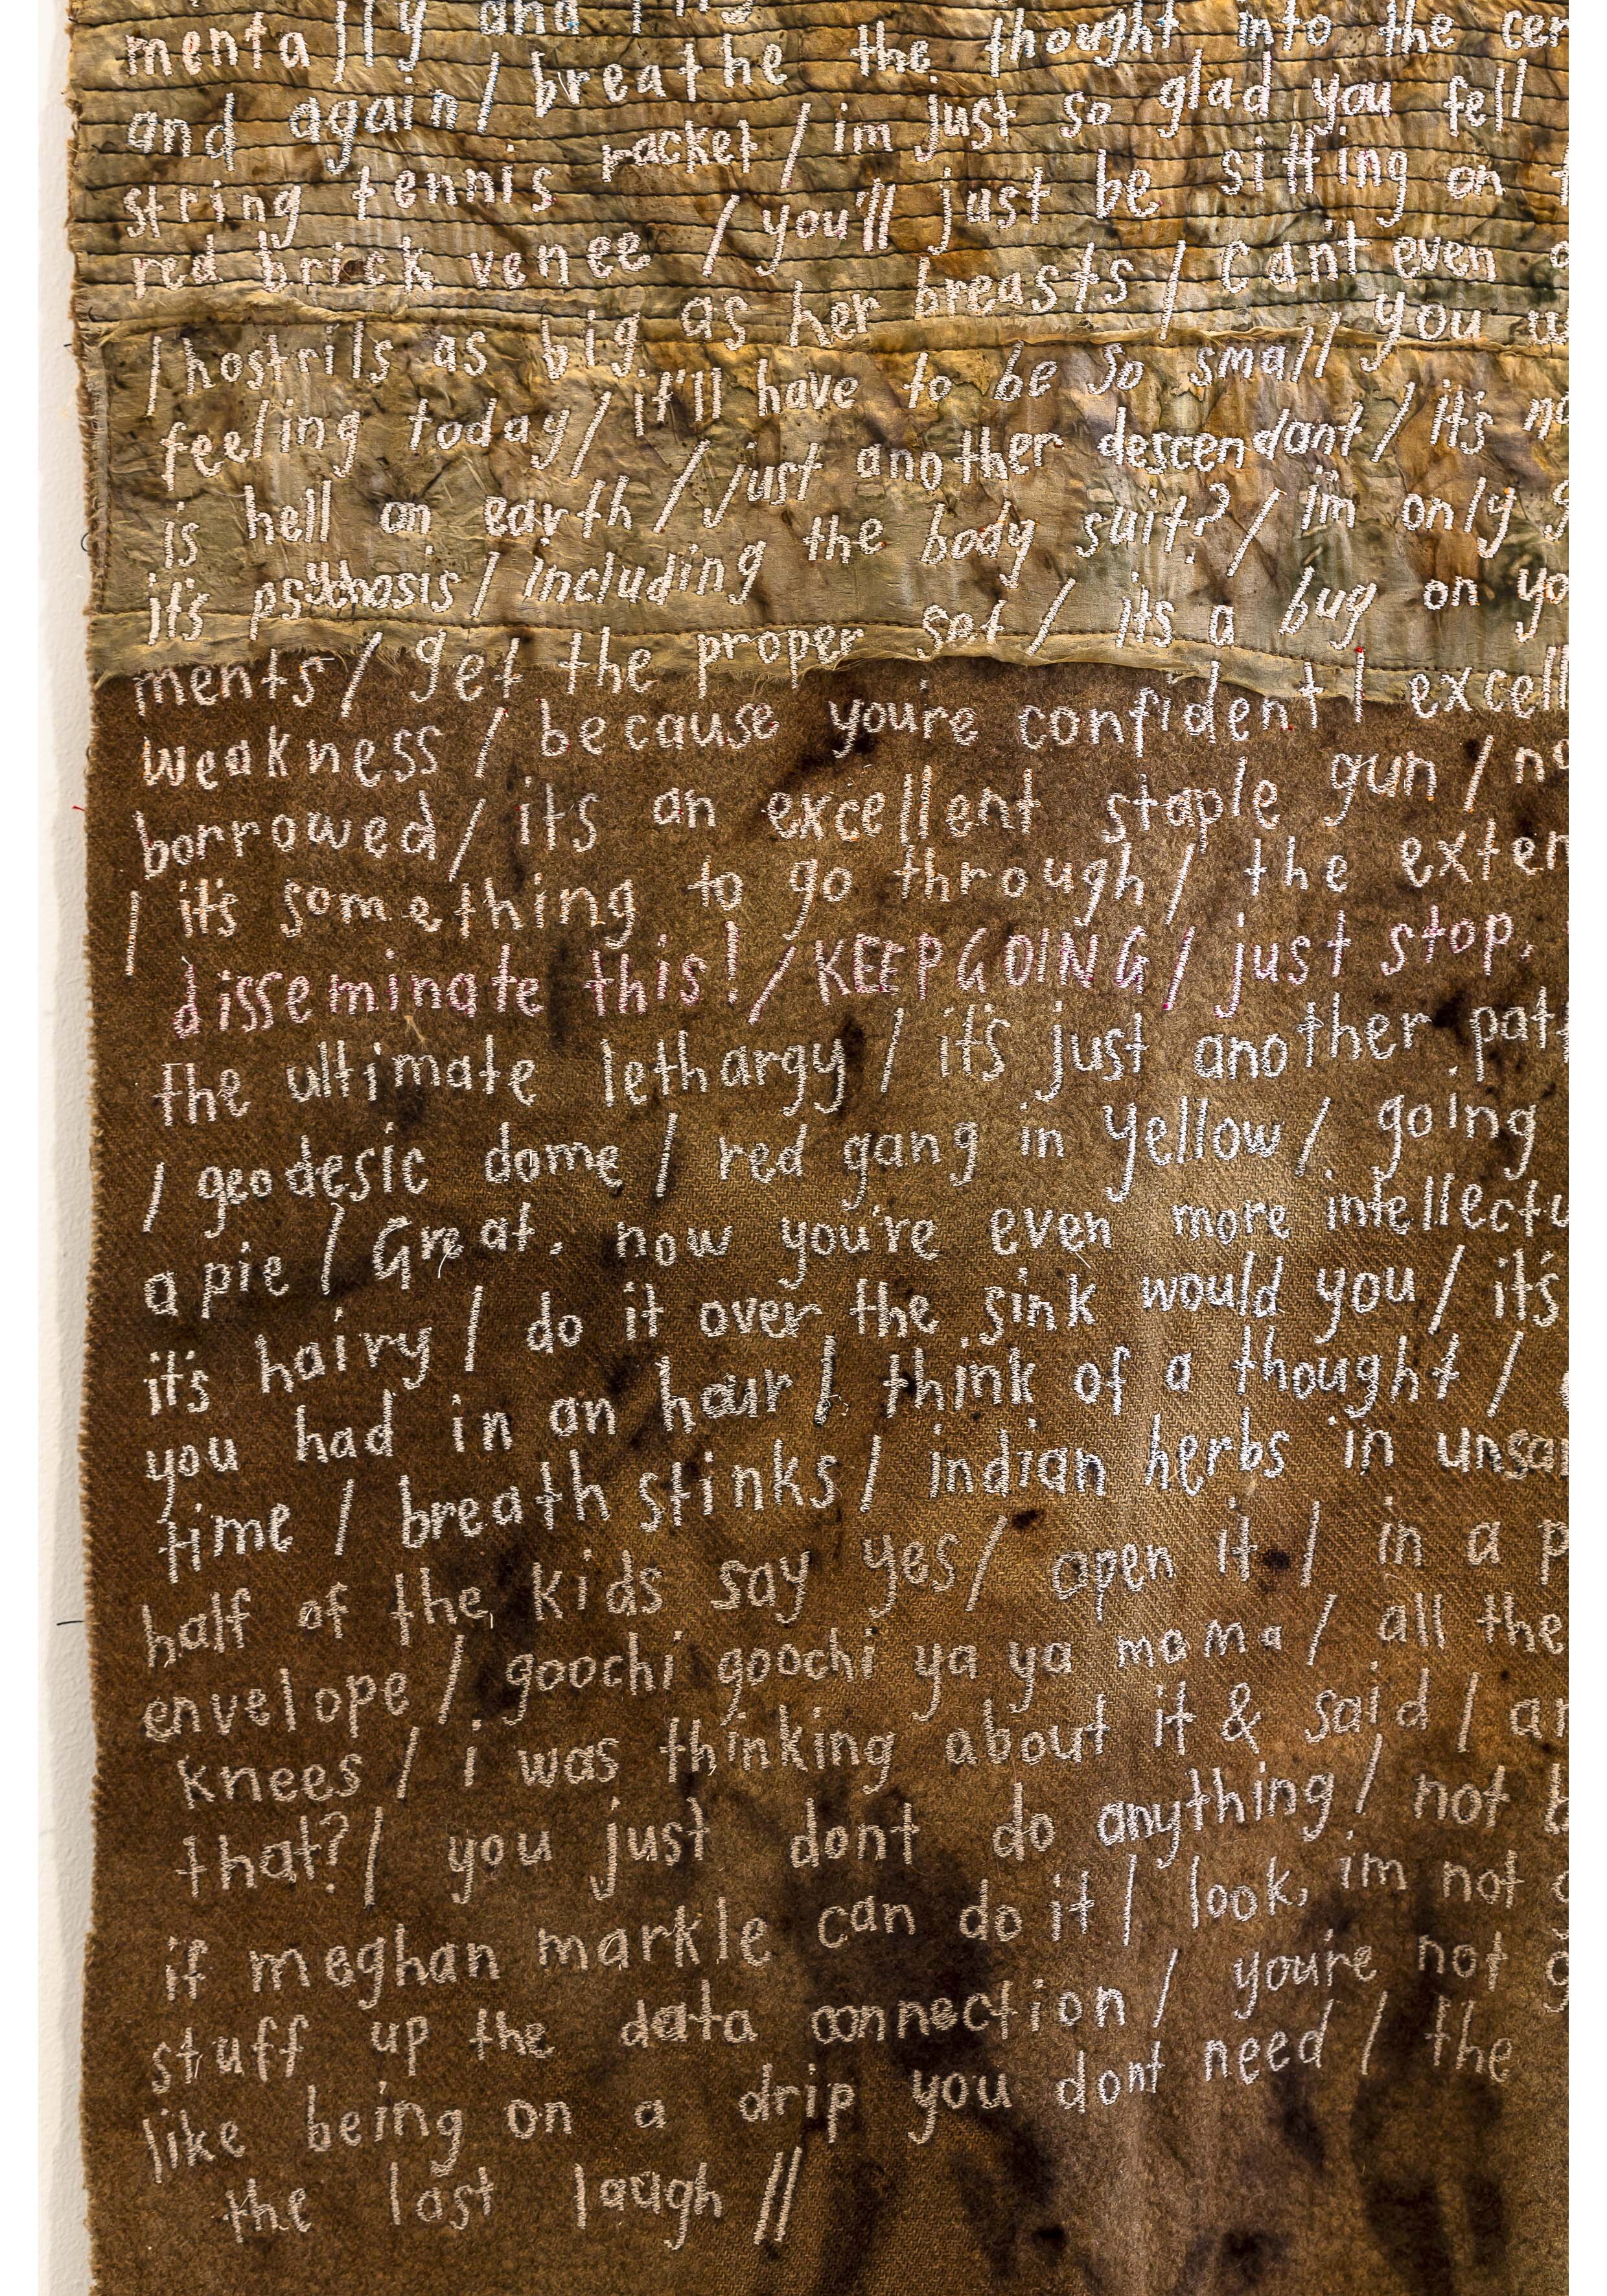 mentally and
breathe the thought into the
and again / im just so glad you fell
string tennis racket / you'll just be sitting on
red brick venee / can't even
/ nostrils as big as her breasts / you
feeling today / it'll have to be so small / it's
is hell on earth / just another descendant / im only
it's psychosis / including the body suit? / on
ments / get the proper set / its a bug
weakness / because you're confident / excell
borrowed / its an excellent staple gun /
/ it's something to go through / the exten
disseminate this! / KEEP GOING / just stop,
the ultimate lethargy / it's just another patt
/ geodesic dome / red gang in yellow / going
a pie / Great. now you're even more intellectu
it's hairy / do it over the sink would you / it's
you had in an hour / think of a thought /
time / breath stinks / indian herbs in unsa
half of the kids say yes / open it / in a p
envelope / goochi goochi ya ya mama / all the
knees / i was thinking about it & said / an
that? / you just dont do anything / not b
if meghan markle can do it / look, im not
stuff up the data connection / you're not g
like being on a drip you dont need / the
the last laugh //